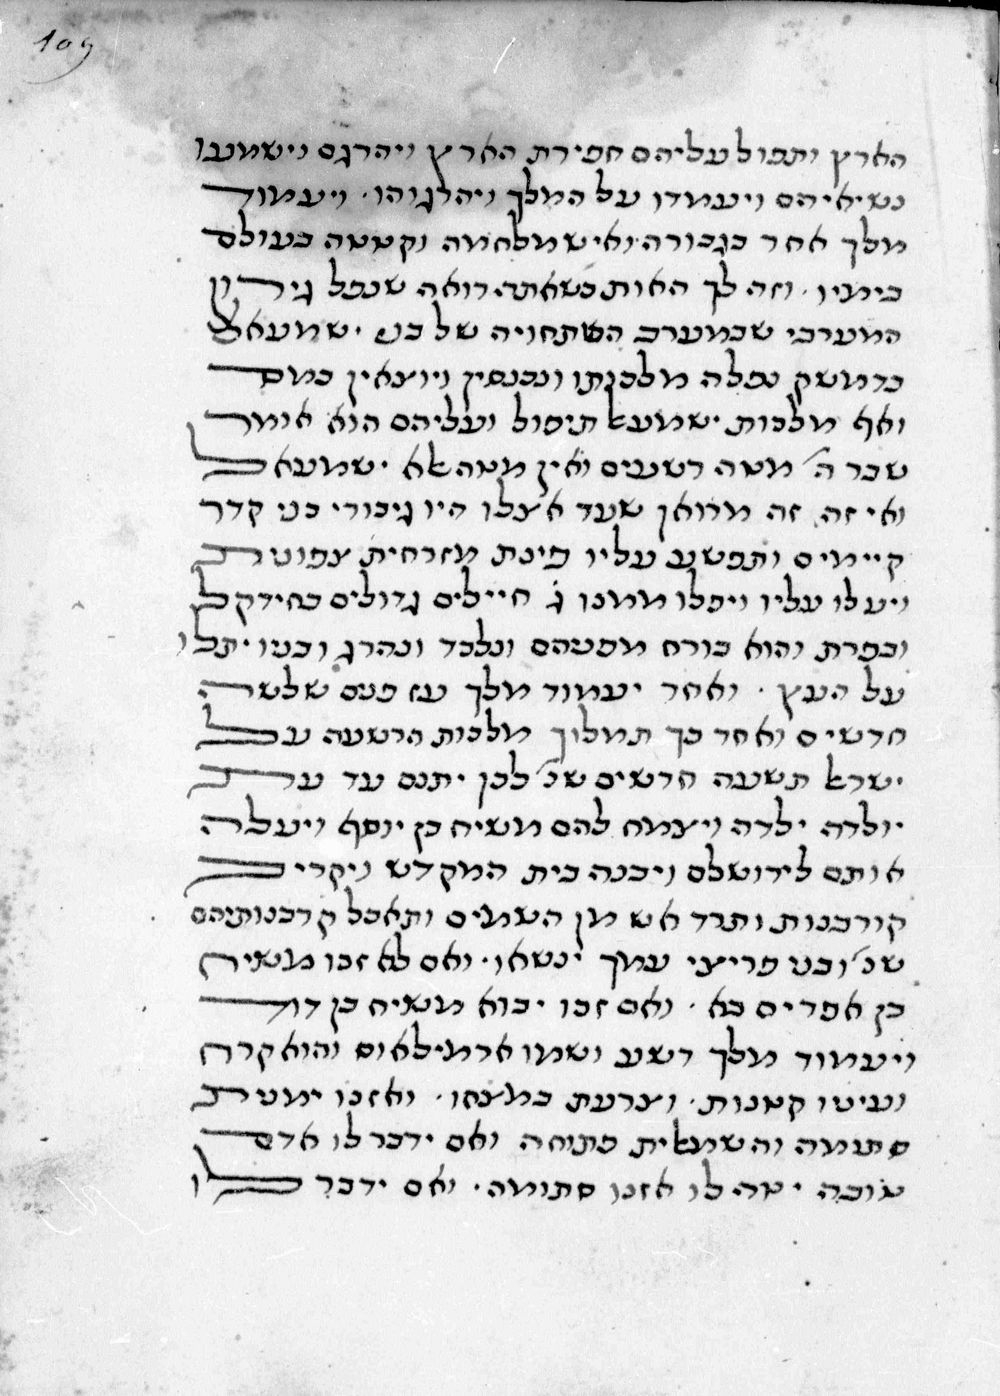 109
הארץ ותפול עליהם חפירת הארץ ויהרגם וישמעו
נשיאיהם ויעמדו על המלך ויהרגוהו. ויעמוד
מלך אחר בגבורה ואיש מלחמה וקטטה בעולם
בימיו. וזה לך האות כשאתה רואה שנפל גירון
המערבי שבמערב השתחויה של בני ישמעאל
בדמשק נפלה מלכותו ונכנסין ויוצאין במס
ואף מלכות ישמעאל תיפול ועליהם הוא אומר
שבר ה' מטה רשעים ואין מטה אלא ישמעאל
ואי זה זה מרואן שעד אצלו היו גיבורי בני קדר
קיימים ותפשע עליו פינת מזרחית צפונית
ויעלו עליו ויפלו ממנו ג' חיילים גדולים בחידקל
ובפרת והוא בורח מפניהם ונלכד ונהרג ובניו יתלו
על העץ. ואחר יעמוד מלך עז פנים שלשה
חדשים ואחר כך תמלוך מלכות הרשעה על
ישראל תשעה חדשים שנ' לכן יתנם עד עת
יולדה ילדה ויצמח להם משיח בן יוסף ויעלה
אותם לירושלם ויבנה בית המקדש ויקריב
קורבנות ותרד אש מן השמים ותאכל קרבנותיהם
שנ' ובני פריצי עמך ינשאו. ואם לא זכו משיח
בן אפרים בא. ואם זכו יבוא משיח בן דוד
ויעמוד מלך רשע ושמו ארמילאוס והוא קרח
ועיניו קטנות. וצרעת במצחו. ואזנו ימנית
סתומה והשמאלית פתוחה ואם ידבר לו אדם
טובה יטה לו אזנו סתומה. ואם ידבר לו